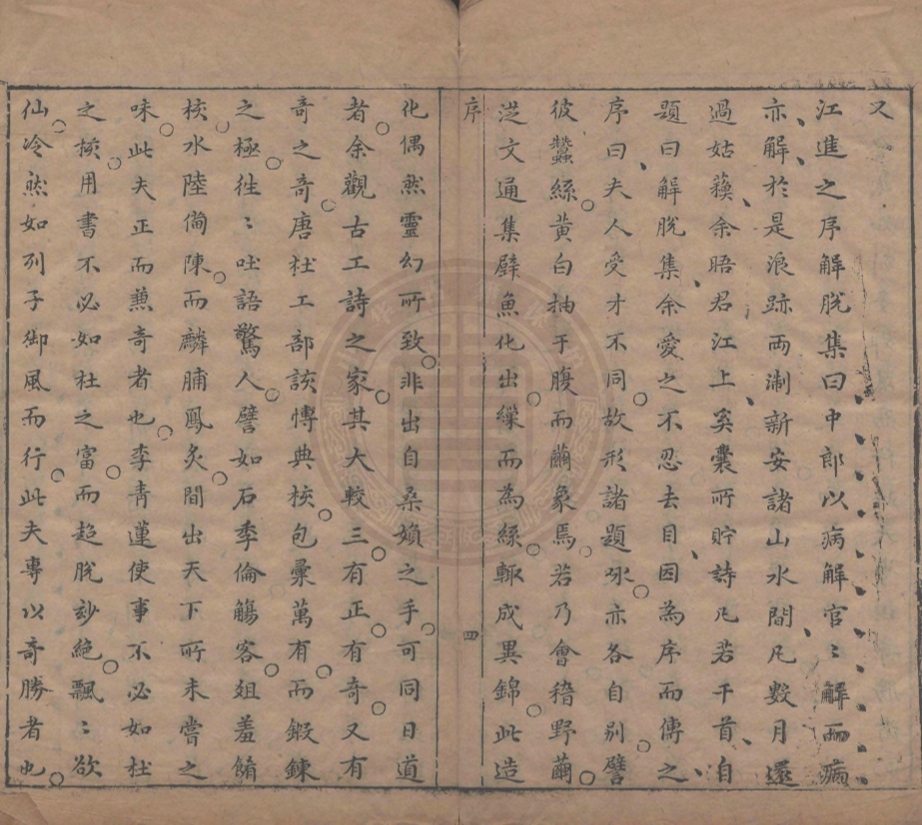 又
江進之序解脫集曰中郎以病解官〻解而病
亦解於是浪跡兩淛新安諸山水間凡數月還
過姑蘓余晤君江上奚囊所貯詩凡若干首自
題曰解脫集余愛之不忍去目因為序而傳之
序曰夫人受才不同故形諸題咏亦各自別譬
彼蠶絲黃白抽于腹而繭象焉若乃會稽野繭
涇文通集壁魚化出繅而為絲輒成異錦此造
序
四
化偶然靈幻所致非出自桑媍之手可同日道
者余觀古工詩之家其大較三有正有奇又有
奇之奇唐杜工部該博典核包彙萬有而鍛鍊
之極往〻吐語驚人譬如石季倫觴客俎羞餚
核水陸俻陳而麟脯鳳炙間出天下所未嘗之
味此夫正而兼奇者也李青蓮使事不必如杜
之核用書不必如杜之富而超脫玅絕飄〻欲
仙冷然如列子御風而行此夫專以奇勝者也